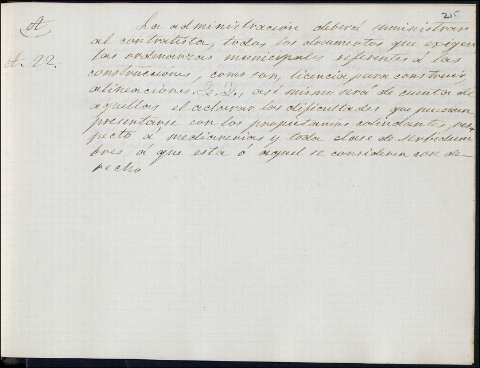 25
A La administracion deberá suministrar
al contratista, todos los documentos que exigen
A. 22. las ordenanzas municipales referentes á las
construcciones, como son, licencia para construir
alineaciones &. &., asi mismo será de cuenta de
aquellas el aclarar las dificultades que puedan
presentarse con los propietarios colindantes, res-
pecto á medianerias y toda clase de servidum
bres á que esta ó aquel se consideren con de-
recho